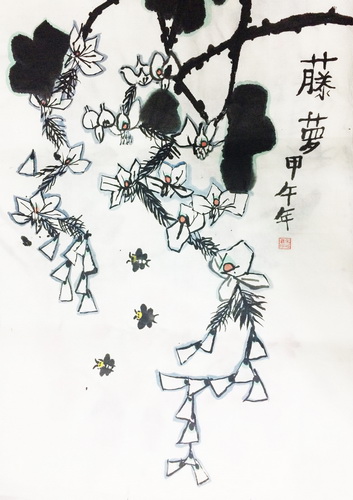 藤萝甲午年